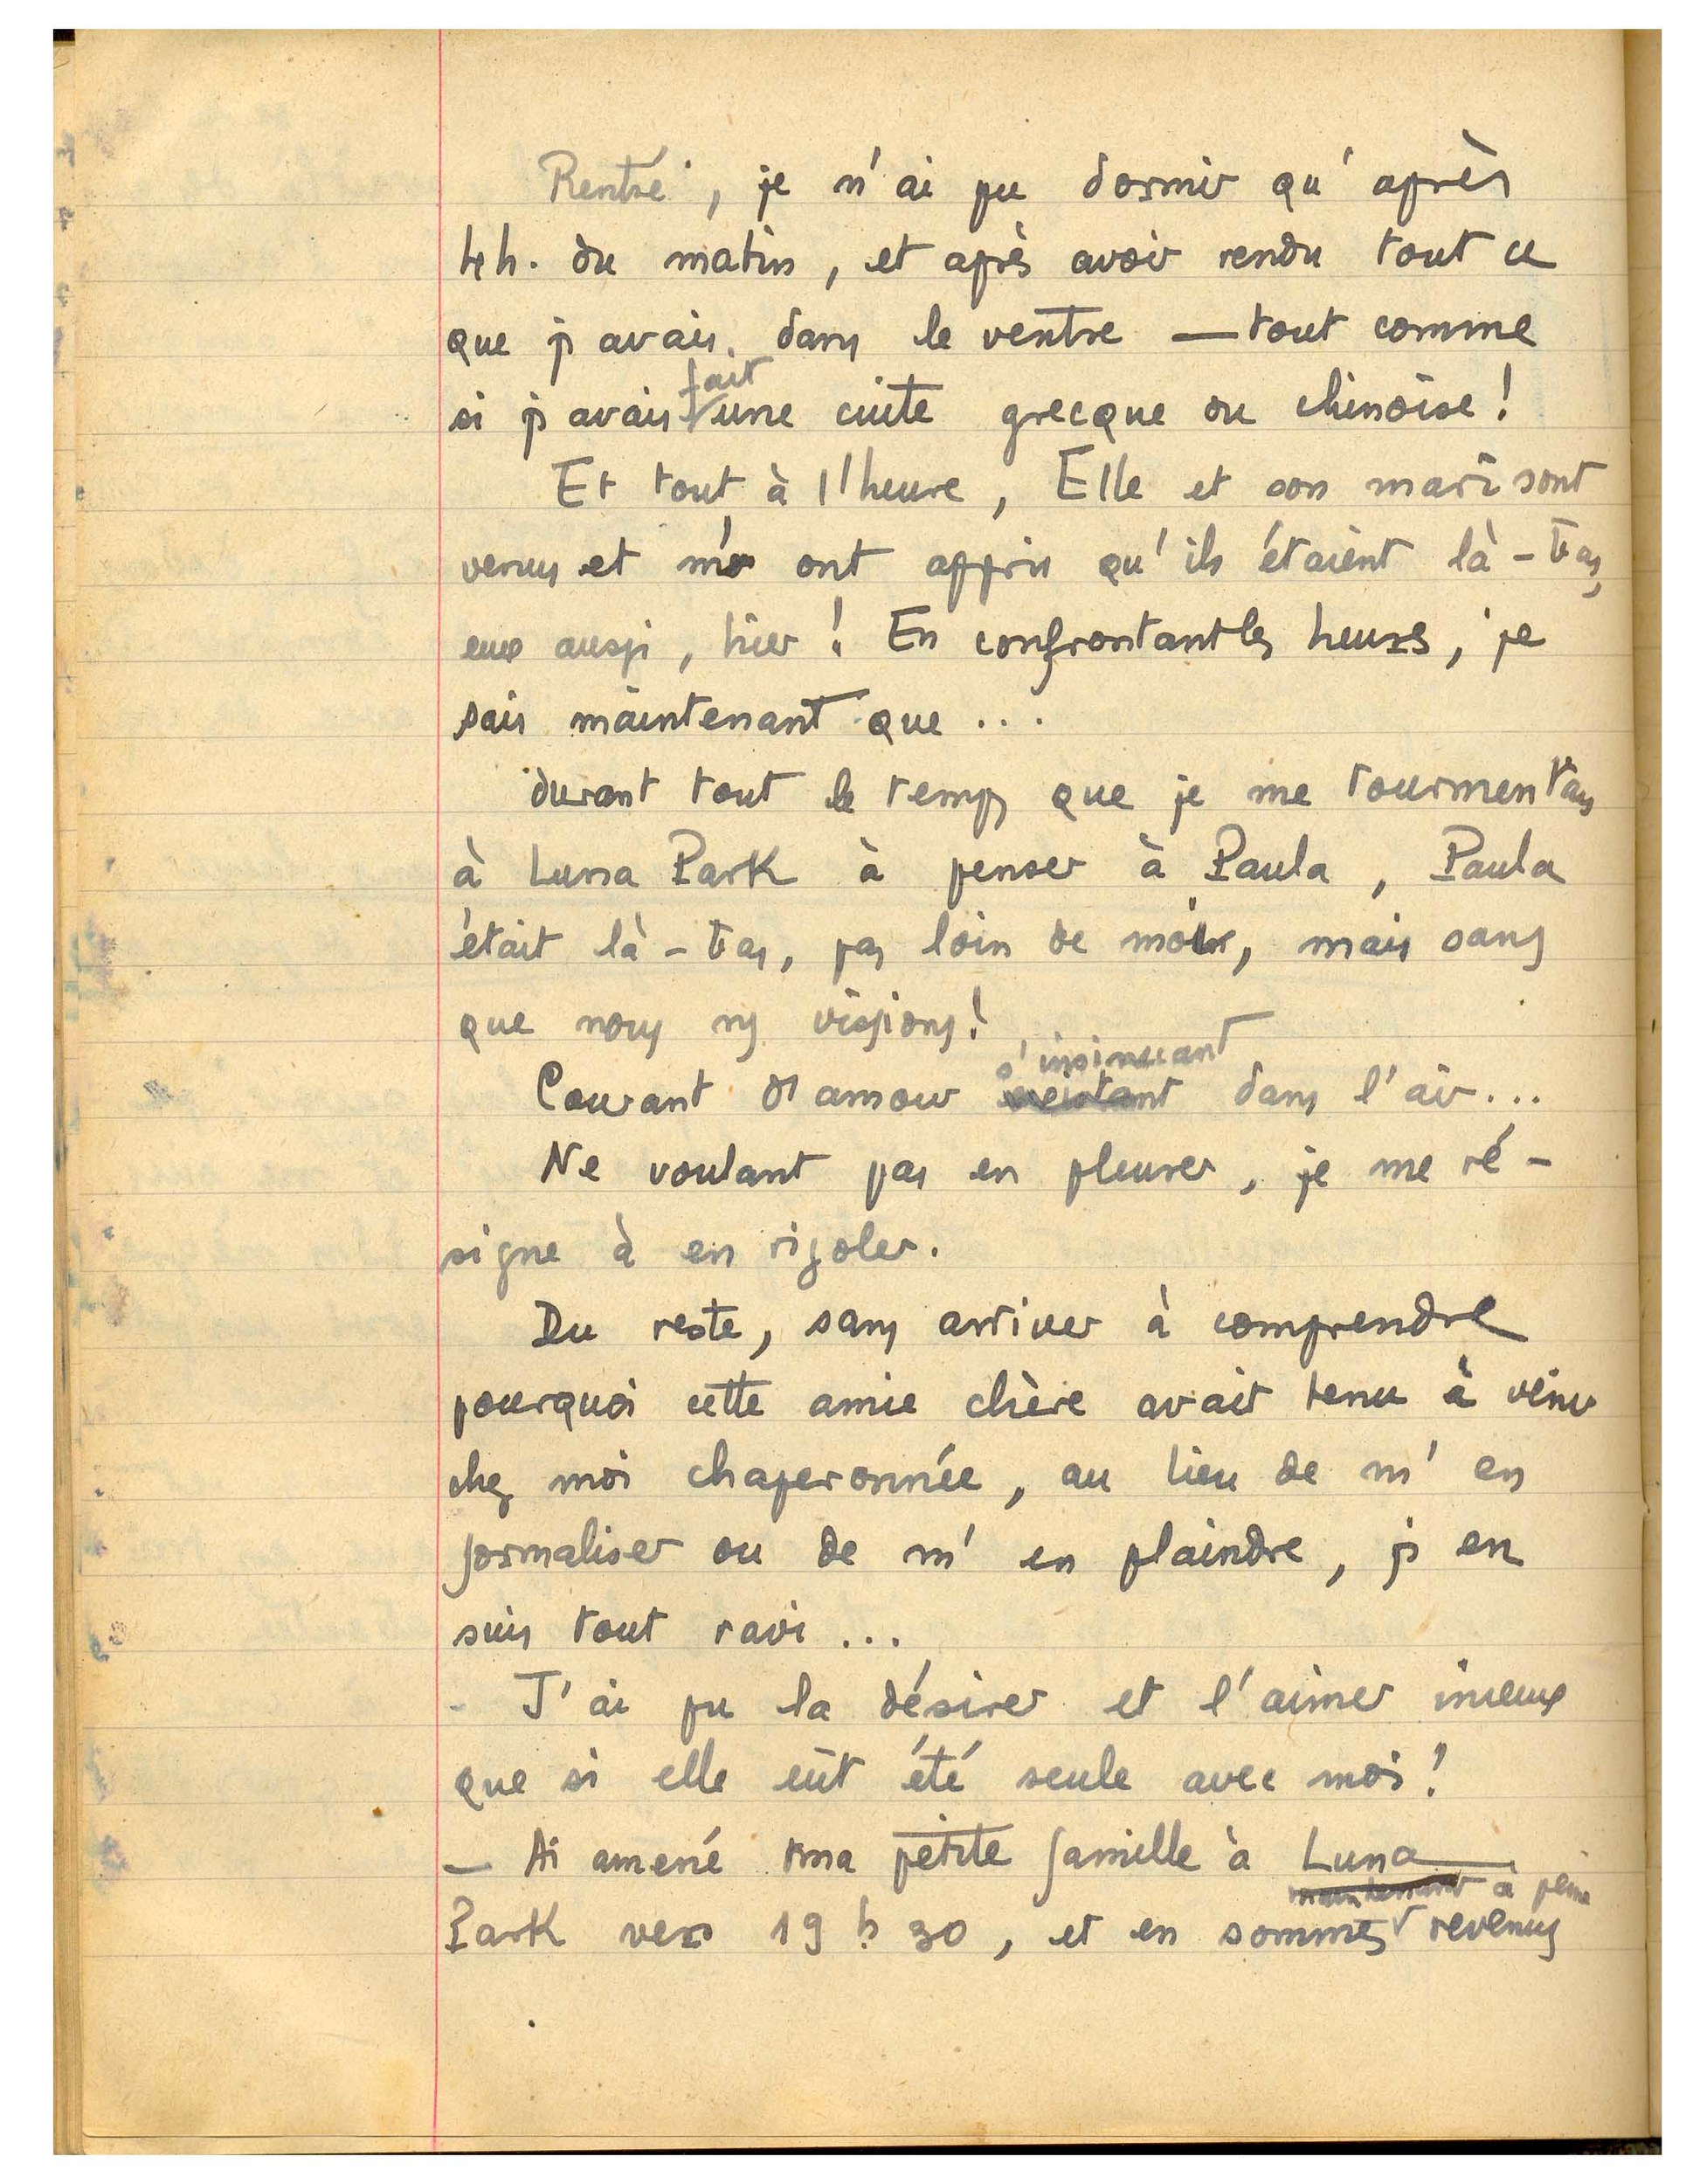 Rentré, je n'ai pu dormir qu'après
4h. du matin, et après avoir rendu tout ce
que j'avais dans le ventre — tout comme
si j'avais fait une cuite grecque ou chinoise !
Et tout à l'heure, Elle et son mari sont
venus et m'ont appris qu'ils étaient là-bas,
eux aussi, hier ! En confrontant les heures, je
sais maintenant que ...
durant tout le temps que je me tourmentais
à Luna Park à penser à Paula, Paula
était là-bas, pas loin de moi, mais sans
que nous ns vissions !
s'insinuant
Courant d'amour dans l'air...
Ne voulant pas en pleurer, je me ré-
signe à en rigoler.
Du reste, sans arriver à comprendre
pourquoi cette amie chère avait tenu à venir
chez moi chaperonnée, au lieu de m'en
formaliser ou de m'en plaindre, j'en
suis tout ravi ...
- J'ai pu la désirer et l'aimer mieux
que si elle eût été seule avec moi !
— Ai amené ma petite famille à Luna
maintenant à peine
Park vers 19 h 30, et en sommes revenus